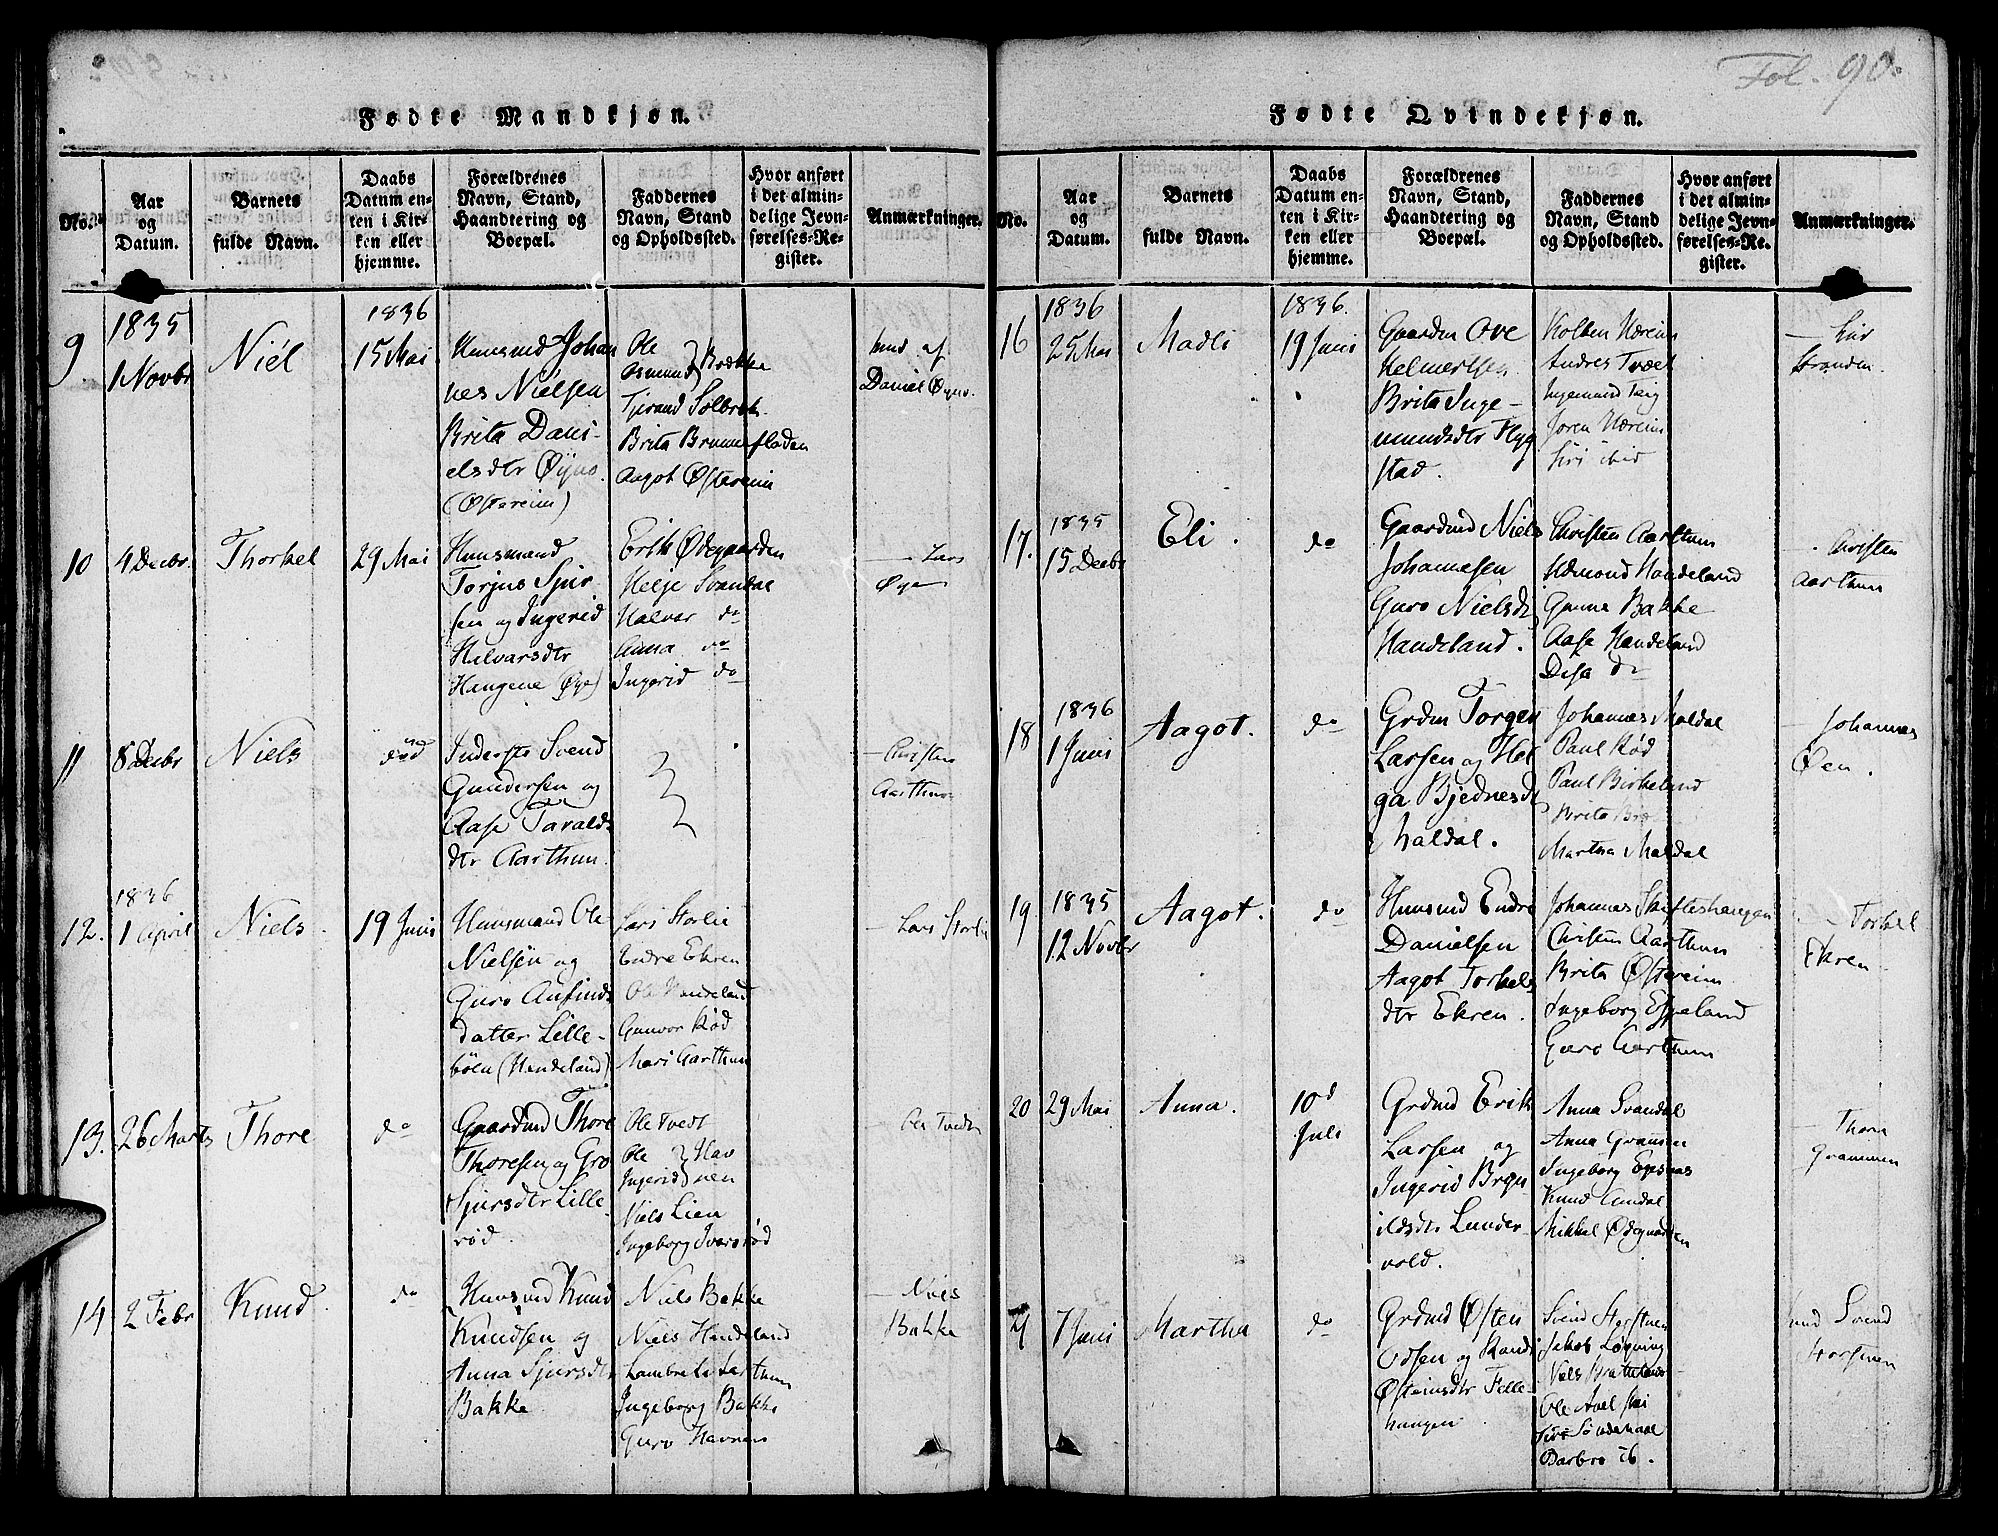 Fol. 90.
Fødte Mandkjøn.
No.
Aar
og
Datum.
Barnets
fulde Navn.
Daabs
Datum en-
ten i Kir-
ken eller
hjemme.
Forældrenes
Navn, Stand,
Haandtering og
Boepæl.
Faddernes
Navn, Stand
og Opholdssted.
Hvor anført
i det almin-
delige Jevn-
førelses-Re-
gister.
Anmærkninger.
9
1835
1 Novbr
Niél
1836
15 Mai
Huusmd Johan
nes Nielsen
Brita Dani-
elsdtr Øyno.
(Østereim)
Ole
Asmund Bakke
Tjerand Solbrek
Brita Brummefladen
Aagot Østereim
hmd af
Daniel Øyno.
10
4 Decbr
Thorkel
29 Mai
Huusmand
Torjus Sjur
sen og Ingerid
Halvarsdtr
Haugene (Øye)
Erik Ødegaarden
Helje Svandal
Halvor do
Anna do
Ingerid do
— Lars
Øye
11
8 Decbr
Niels
død
Inderste Svend
Gundersen og
Aase Taralds
dtr Aarthun.
— Christen
Aarthun
12.
1836
1 April
Niels
19 Juni
Huusmand Ole
Nielsen og
Guro Anfinds
datter Lille-
bøen (Handeland)
Lars Storlie
Endre Ekren
Ole Handeland
Gunvor Rød
Mari Aarthun
— Lars Storlie
13.
26 Marts
Thore
do
Gaardmd Thore
Thoresen og Gro
Sjursdtr Lille-
rød.
Ole Tvedt
Ole
Ingerid Hav
nen
Niels Lien
Ingeborg Svarsrød
— Ole Tvedt
14
2 Febr
Knud
do
Huusmd Knud
Knudsen og
Anna Sjursdtr
Bakke
Niels Bakke
Niels Handeland
Lambret Aarthun
Ingeborg Bakke
Guro Havnen
— Niels
Bakke
Fødte Qvindekjøn.
No.
Aar
og
Datum.
Barnets
fulde Navn.
Daabs
Datum en-
ten i Kir-
ken eller
hjemme.
Forældrenes
Navn, Stand,
Haandtering og
Boepæl.
Faddernes
Navn, Stand
og Opholdssted.
Hvor anført
i det almin-
delige Jevn-
førelses-Re-
gister.
Anmærkninger.
16
1836
25 Mai
Madli
1836.
19 Juni
Gaardm Ove
Helmertsen
Brita Inge-
mundsdtr Hyg
stad.
Kolben Hæreim
Andres Tvæet
Ingemund Teig
Joren Hæreim
Siri ibid
—
Stranden.
17.
1835
15 Decbr
Eli
do
Gaardmd Niels
Johannesen
Guro Nielsdt
Handeland.
Christen Aarthun
Edmond Handeland
Gunna Bakke
Aase Handeland
Desa do
— Christen
Aarthun
18
1836
1 Juni
Aagot.
do
Grdm Torger
Larsen og Hel
ga Bjednesdt
Maldal.
Johannes Maldal
Paul Rød
Paul Birkeland
Brita
Martha Maldal
— Johannes
Øen.
19.
1835
12 Novbr
Aagot.
do
Huusmd Endre
Danielsen
Aagot Torkels
dtr Ekren.
Johannes Skifteshaugen
Christen Aarthun
Brita Østereim
Ingeborg Espeland
Guro Aarthun
— Torkel
Ekren
20
29 Mai
Anna.
10d
Juli
Grdmd Erik
Larsen og
Ingerid Bryn
ildsdtr Lunder-
vold.
Anna Svandal
Anna Grammen
Ingeborg Epsnas
Knud Aandal
Mikkel Ødegaarden
— Thore
Grammen
21
7 Juni
Martha
do
Grdmd Østen
Odsen og Randi
Østeinsdtr Felle-
haugen
Svend Storstuen
Jakob Løgning
Niels Bratteland
Ole
Barbro ib.
hmd Svend
Storstuen